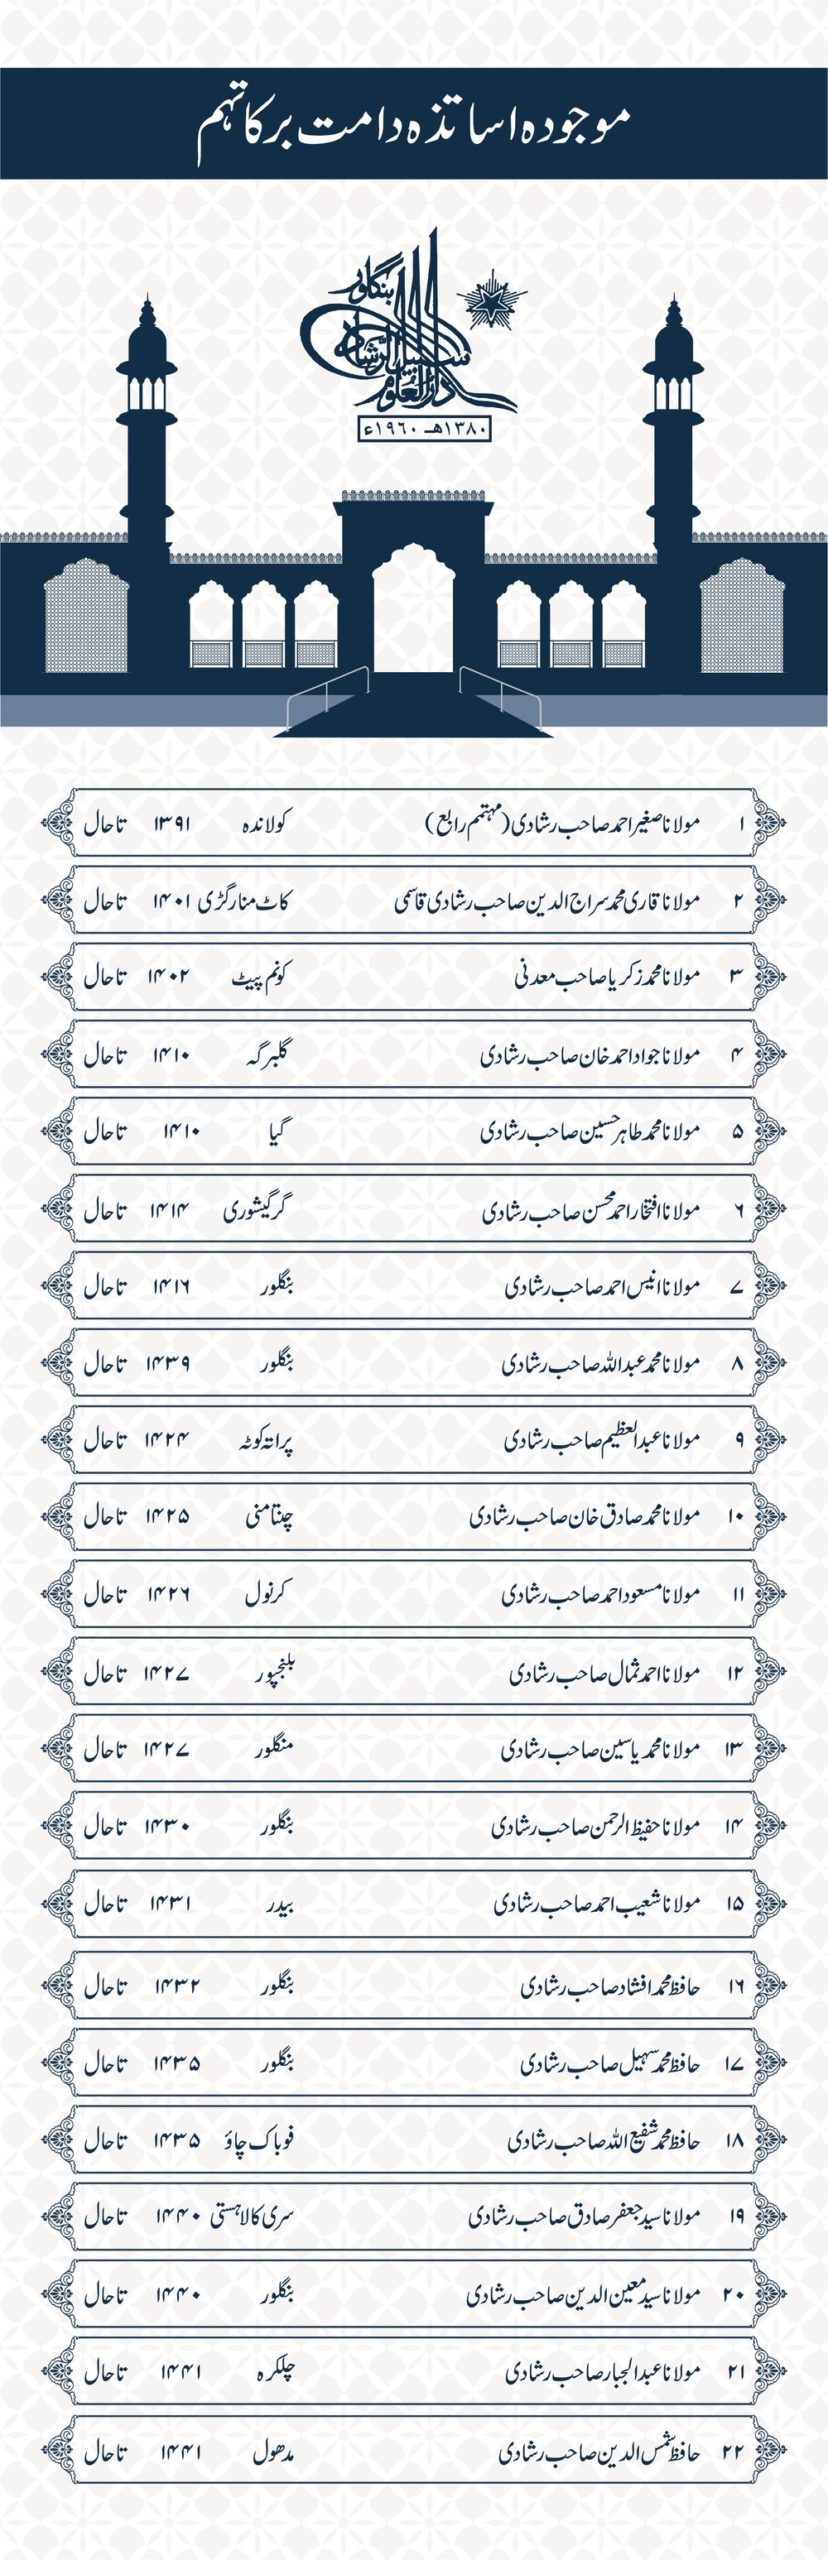 موجودہ اساتذہ دامت برکاتہم
بنگلور
دارالعلوم سبیل الرشاد
۱۳۸۰ھ ۱۹۶۰ء
۱ مولانا صغیر احمد صاحب رشادی (مہتمم رابع) کولاندہ ۱۳۹۱ تاحال
۲ مولانا قاری محمد سراج الدین صاحب رشادی قاسمی کاٹ منارگڑی ۱۴۰۱ تاحال
۳ مولانا محمد زکریا صاحب معدنی کونم پیٹ ۱۴۰۲ تاحال
۴ مولانا جواد احمد خان صاحب رشادی گلبرگہ ۱۴۱۰ تاحال
۵ مولانا محمد طاہر حسین صاحب رشادی گیا ۱۴۱۰ تاحال
۶ مولانا افتخار احمد محسن صاحب رشادی گرگیشوری ۱۴۱۴ تاحال
۷ مولانا انیس احمد صاحب رشادی بنگلور ۱۴۱۶ تاحال
۸ مولانا محمد عبداللہ صاحب رشادی بنگلور ۱۴۳۹ تاحال
۹ مولانا عبدالعظیم صاحب رشادی پراتہ کوٹہ ۱۴۲۴ تاحال
۱۰ مولانا محمد صادق خان صاحب رشادی چنتامنی ۱۴۲۵ تاحال
۱۱ مولانا مسعود احمد صاحب رشادی کرنول ۱۴۲۶ تاحال
۱۲ مولانا احمد ثمال صاحب رشادی بلنجپور ۱۴۲۷ تاحال
۱۳ مولانا محمد یاسین صاحب رشادی منگلور ۱۴۲۷ تاحال
۱۴ مولانا حفیظ الرحمن صاحب رشادی بنگلور ۱۴۳۰ تاحال
۱۵ مولانا شعیب احمد صاحب رشادی بیدر ۱۴۳۱ تاحال
۱۶ حافظ محمد افشاد صاحب رشادی بنگلور ۱۴۳۲ تاحال
۱۷ حافظ محمد سہیل صاحب رشادی بنگلور ۱۴۳۵ تاحال
۱۸ حافظ محمد شفیع اللہ صاحب رشادی فوباک چاؤ ۱۴۳۵ تاحال
۱۹ مولانا سید جعفر صادق صاحب رشادی سری کالاہستی ۱۴۴۰ تاحال
۲۰ مولانا سید معین الدین صاحب رشادی بنگلور ۱۴۴۰ تاحال
۲۱ مولانا عبدالجبار صاحب رشادی چلکرہ ۱۴۴۱ تاحال
۲۲ حافظ شمس الدین صاحب رشادی مدھول ۱۴۴۱ تاحال